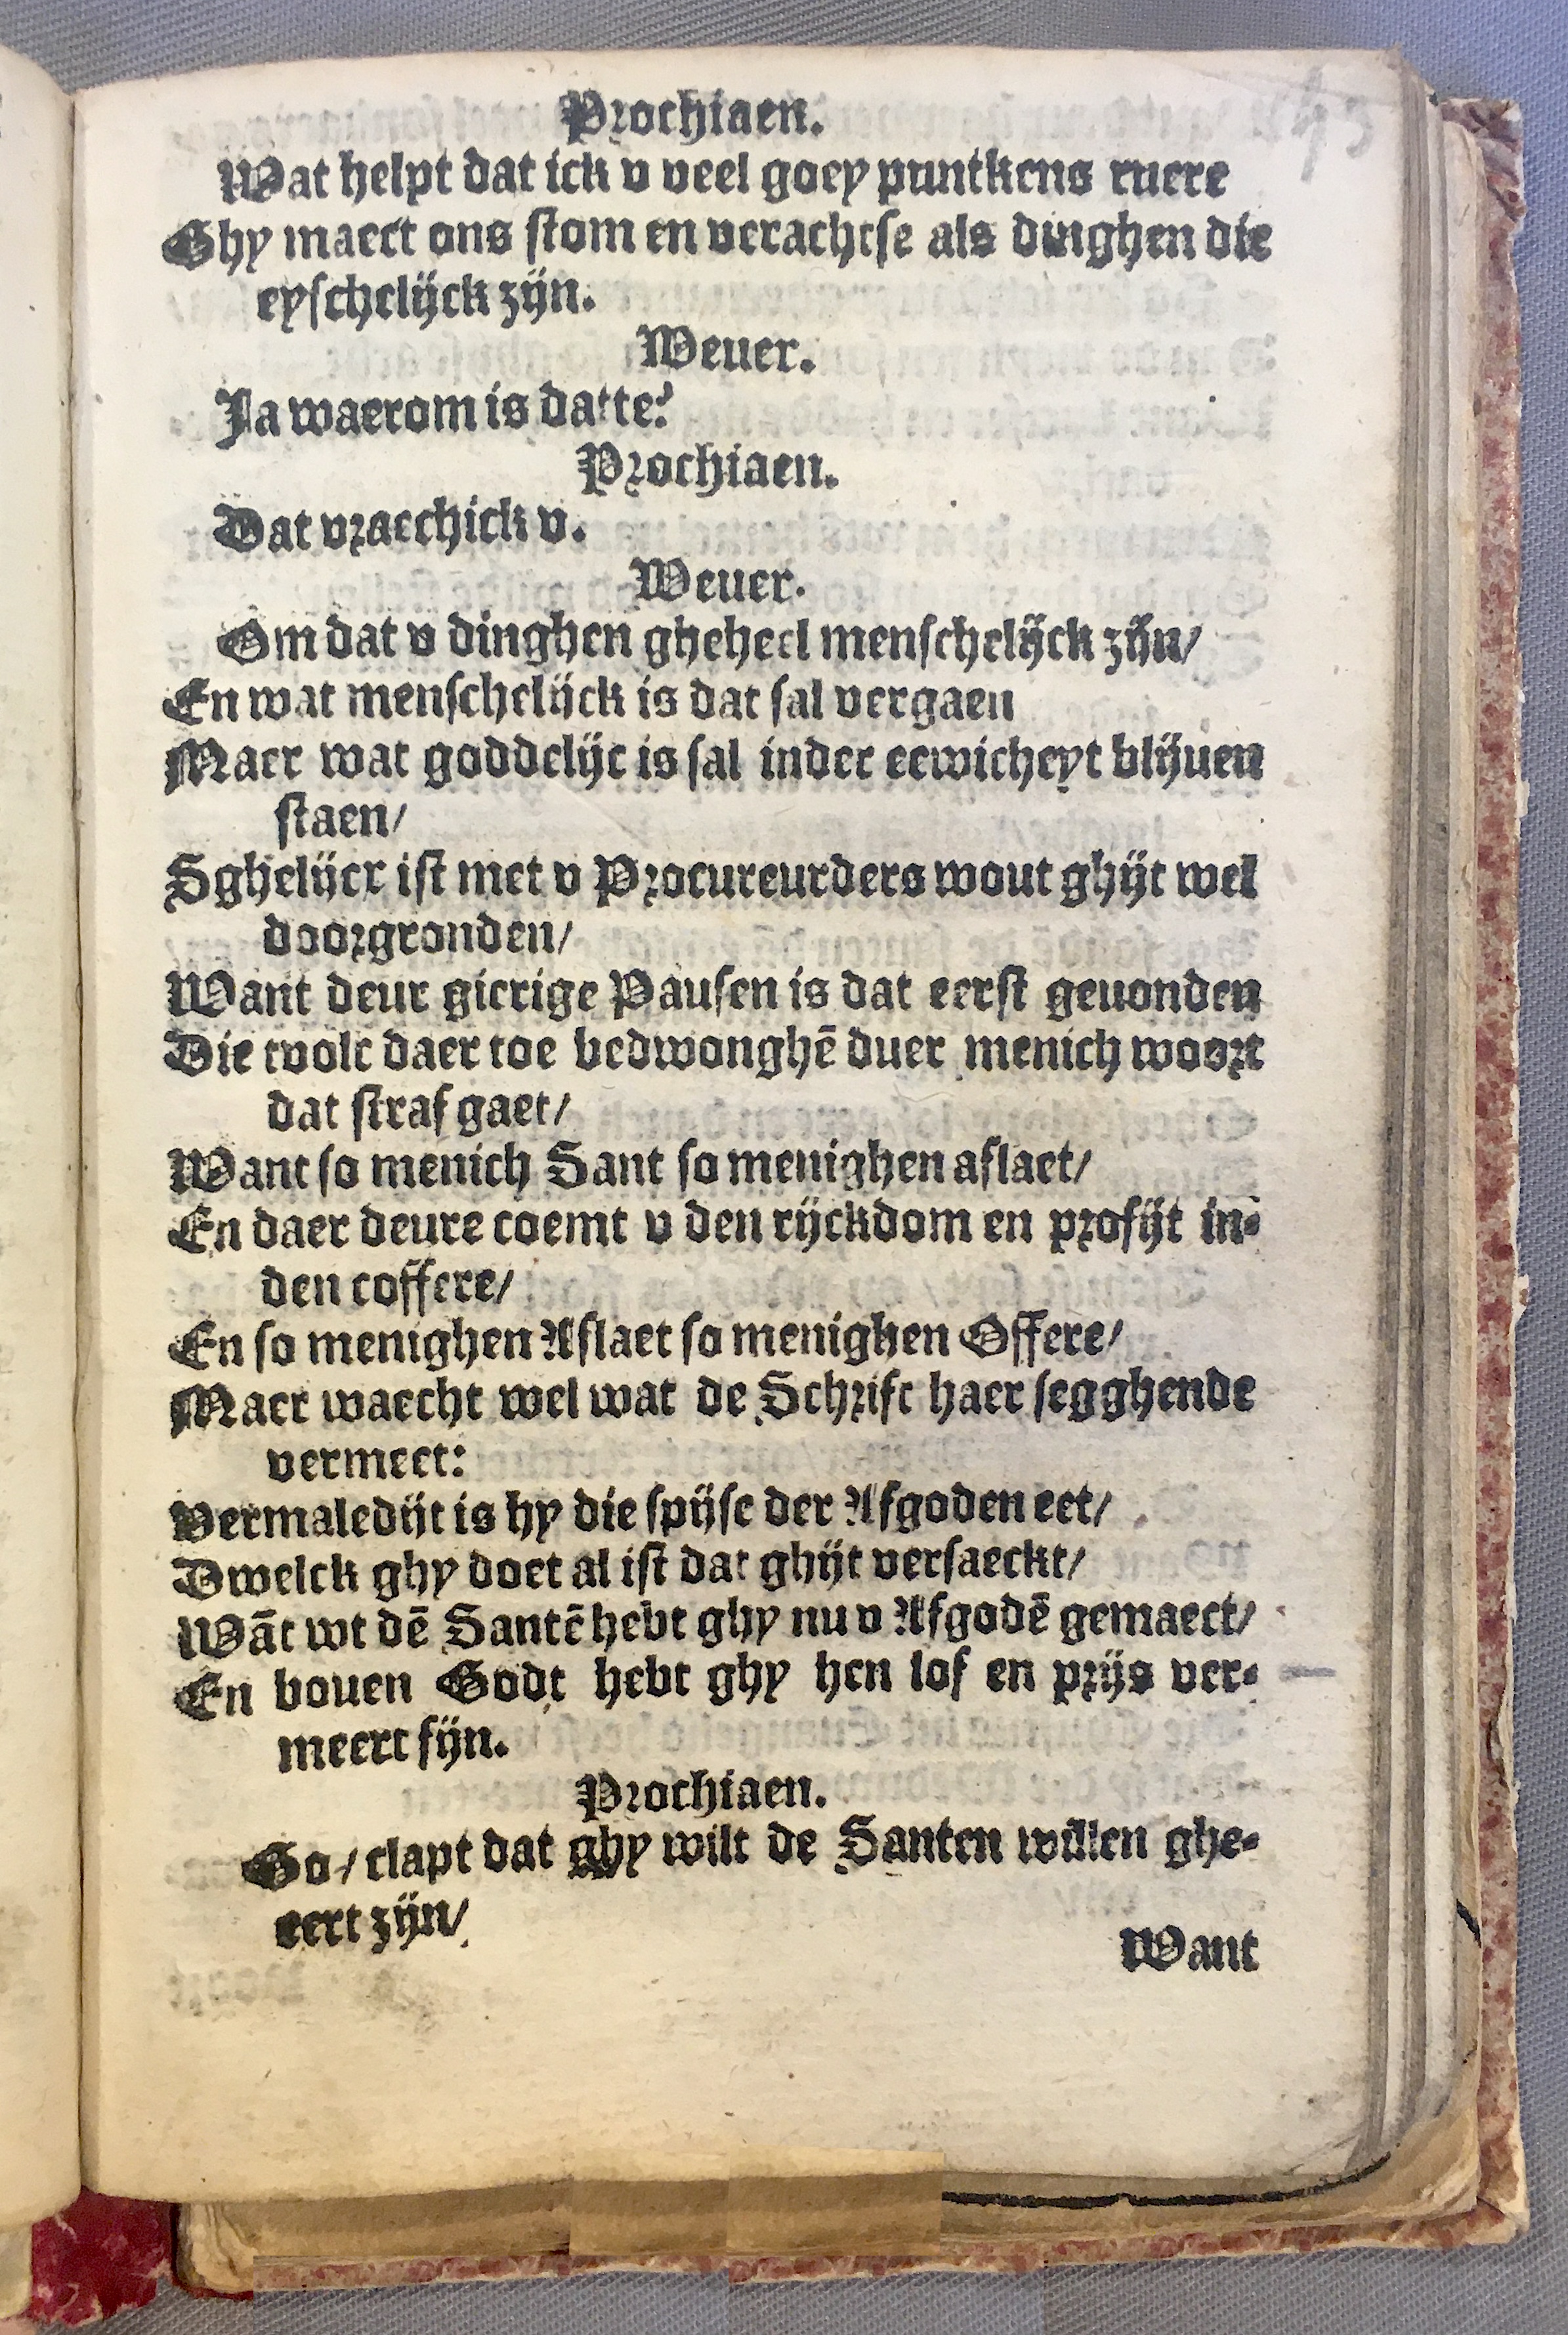 Prochiaen.
Wat helpt dat ick v veel goey puntkens ruere
Ghy maect ons stom en verachtse als dinghen die
eyschelijck zijn.
Weuer.
Ja waerom is datte?
Prochiaen.
Dat vraechick v.
Weuer.
Om dat v dinghen gheheel menschelijck zijn/
En wat menschelijck is dat sal vergaen
Maer wat goddelijc is sal inder eewicheyt blijuen
staen/
Sghelijcx ist met v Procureurders wout ghijt wel
doorgronden/
Want deur gierige Pausen is dat eerst geuonden
Die tvolc daer toe bedwonghē duer menich woort
dat straf gaet/
Want so menich Sant so menighen aflaet/
En daer deure coemt v den rijckdom en profijt in-
den coffere/
En so menighen Aflaet so menighen Offere/
Maer waecht wel wat de Schrift haer segghende
vermeet:
Vermaledijt is hy die spijse der Afgoden eet/
Dwelck ghy doet al ist dat ghijt versaeckt/
Wāt wt dē Santē hebt ghy nu v Afgodē gemaect/
En bouen Godt hebt ghy hen lof en prijs ver-
meert sijn.
Prochiaen.
Go/ clapt dat ghy wilt de Santen willen ghe-
eert zijn/
Want